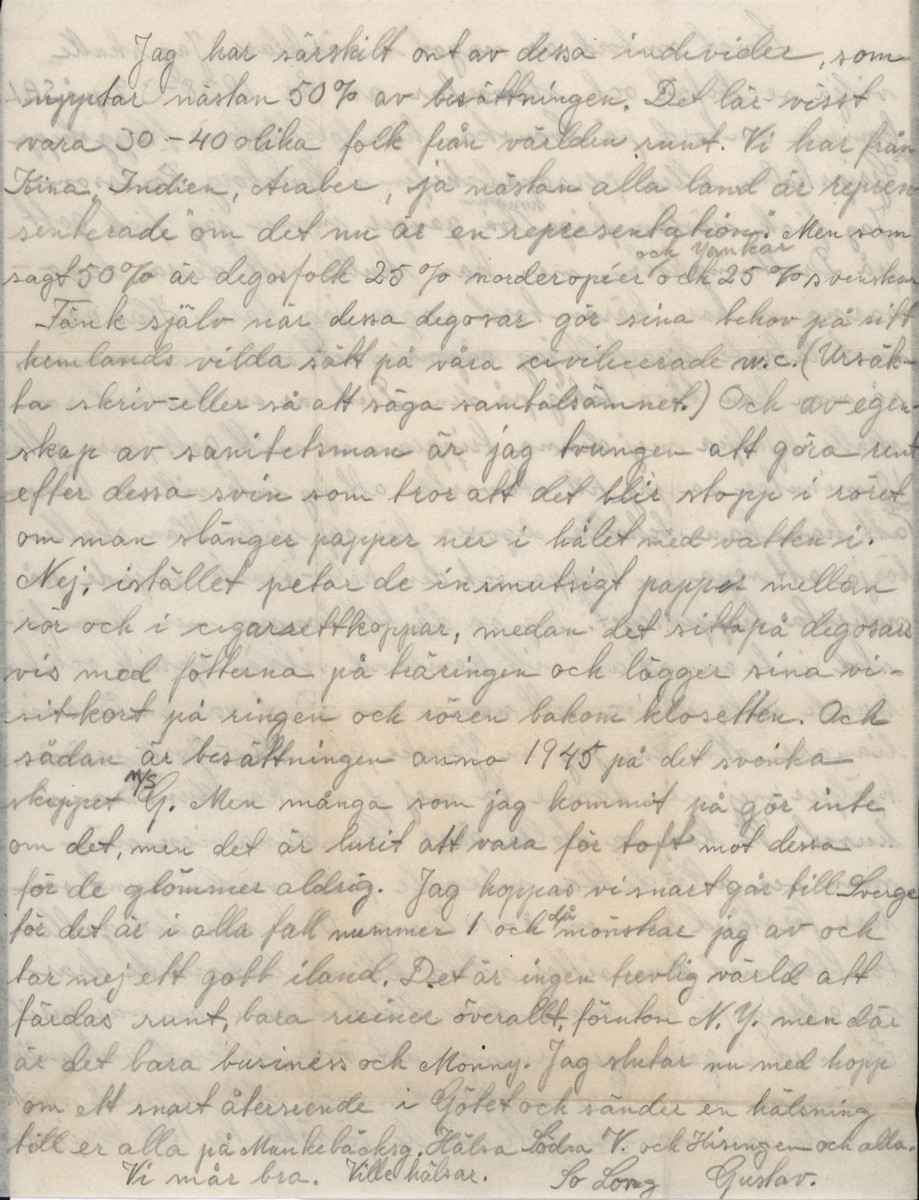 Jag har särskilt ont av dessa individer, som
upptar nästan 50% av besättningen. Det lär visst
vara 30-40 olika folk från världen runt. Vi har från
Kina, Indien, Araber, ja nästan alla land är repren
senterade om det nu är en representation". Men som
och Yankar
sagt 50% är degosfolk 25% norderopéer och 25% svenskar
Tänk själv när dessa degosar gör sina behov på sitt
hemlands vilda sätt på våra civilicerade w.c. (Ursäk-
ta skriv-eller så att säga samtalsämnet.) Och av egen-
skap av sanitetsman är jag tvungen att göra rent
efter dessa svin som tror att det blir stopp i röret
om man slänger papper ner i hålet med vatten i.
Nej, istället petar de in smutsigt papper mellan
rör och i cigarrettkoppar, medan det sitta på degosars
vis med fötterna på träringen och lägger sina vi-
sitkort på ringen och rören bakom klosetten. Och
sådan är besättningen anno 1945 på det svenka
skeppet M/S G. Men många som jag kommit på gör inte
om det, men det är lurit att vara för toft mot dessa
för de glömmer aldrig. Jag hoppas vi snart går till Sverge
för det är i alla fall nummer 1 och då mönstrar jag av och
tar mej ett gott iland. Det är ingen trevlig värld att
färdas runt, bara ruiner överallt, förutom N.Y. men där
är det bara business och Monny. Jag slutar nu med hopp
om ett snart återseende i Götet och sänder en hälsning
till er alla på Munkebäcksg. Hälsa Södra V. och Hisingen och alla.
Vi mår bra. Ville hälsar. So Long Gustav.